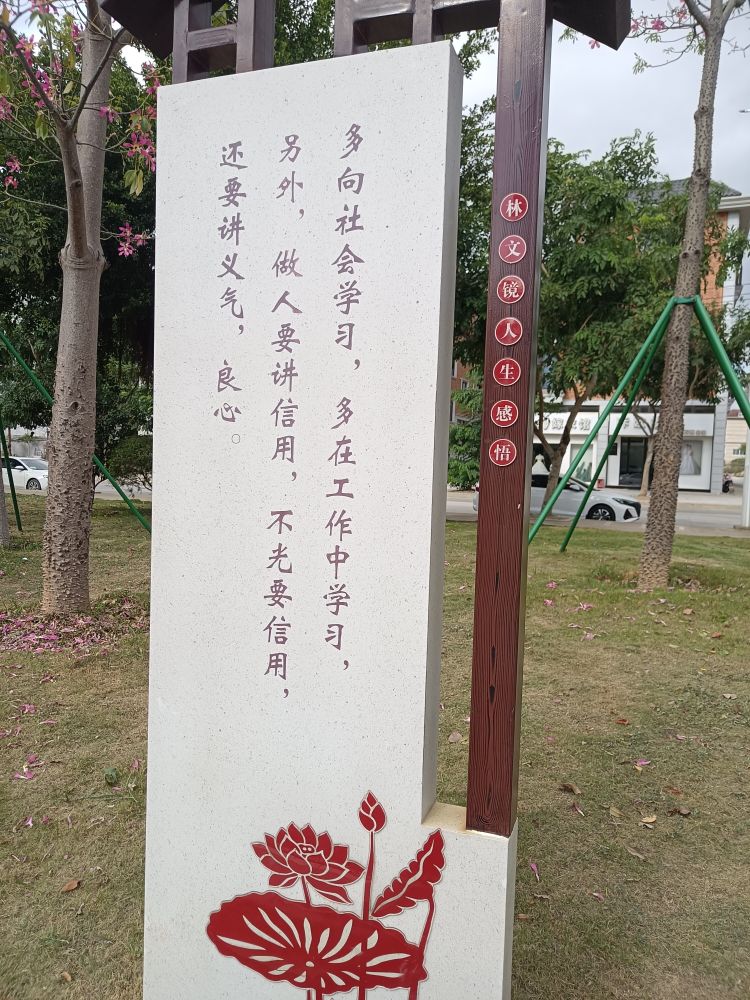 林文镜人生感悟
多向社会学习，多在工作中学习，
另外，做人要讲信用，不光要信用，
还要讲义气，良心。